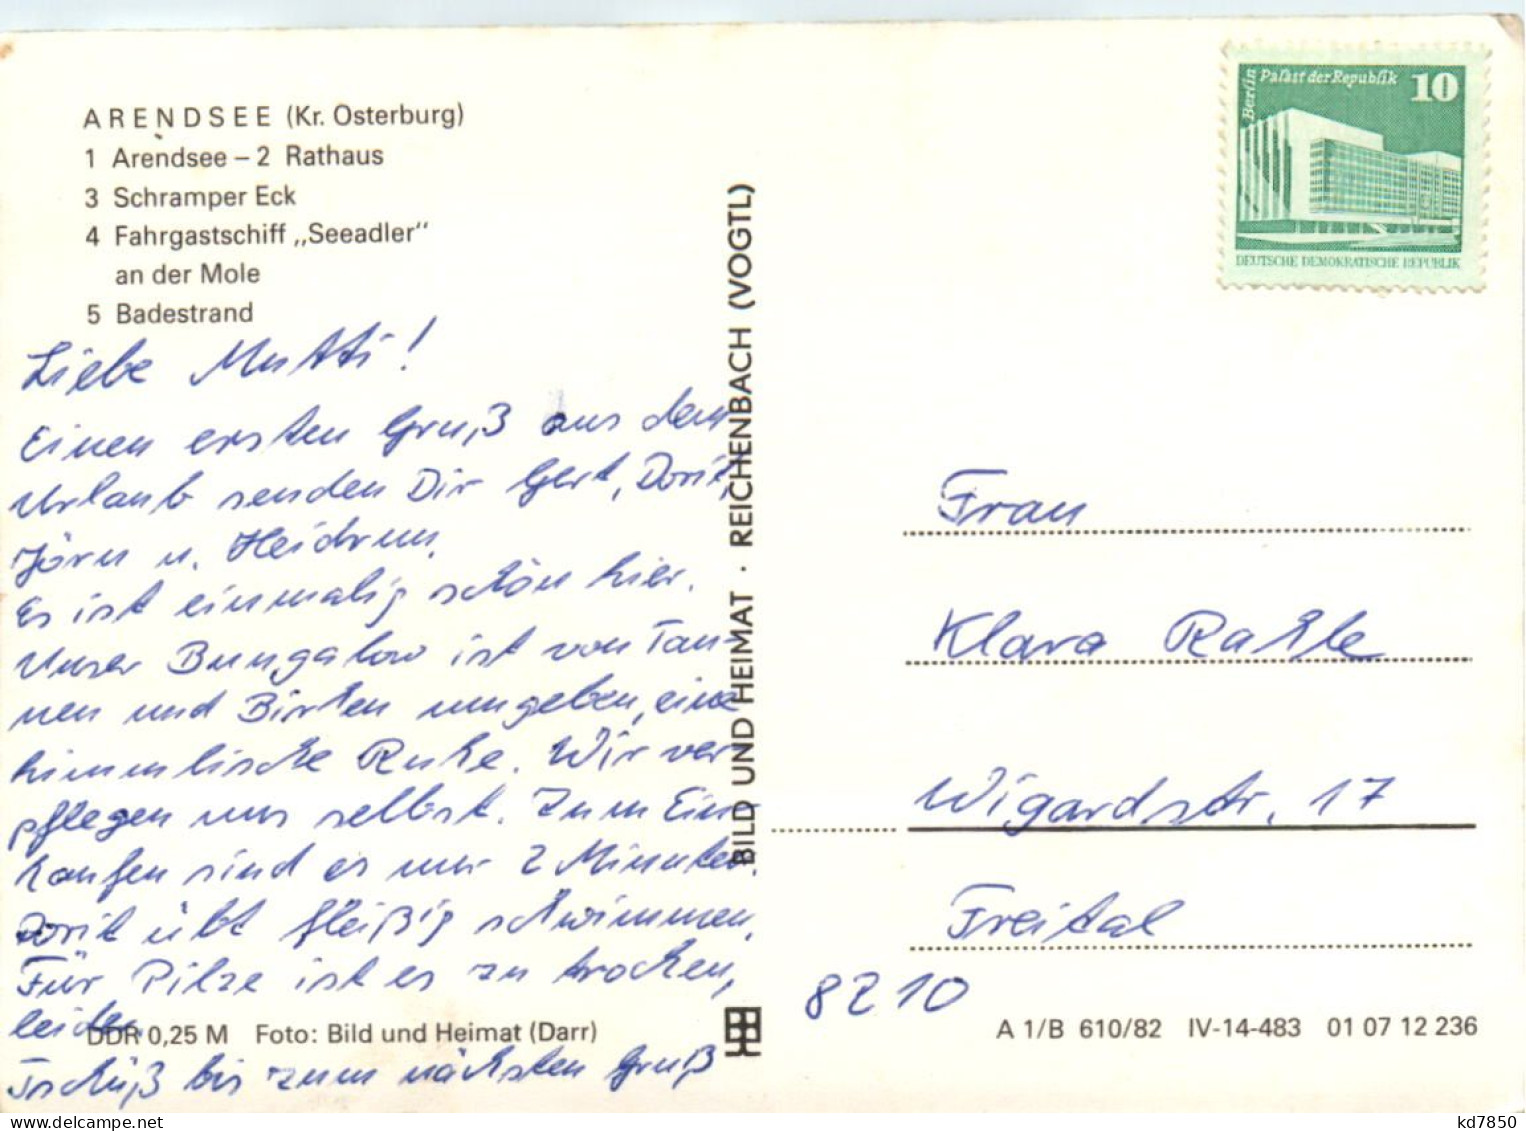 ARENDSEE (Kr. Osterburg)
1 Arendsee – 2 Rathaus
3 Schramper Eck
4 Fahrgastschiff „Seeadler“
an der Mole
5 Badestrand
Liebe Mutti!
Einen ersten Gruß aus dem
Urlaub senden Dir Gert, Dorit,
Jörn u. Heidrun.
Es ist einmalig schön hier.
Unser Bungalow ist von Tan-
nen und Birken umgeben, eine
himmlische Ruhe. Wir ver-
pflegen uns selbst. Zum Ein-
kaufen sind es nur 2 Minuten.
Dorit übt fleißig schwimmen.
Für Pilze ist es zu trocken,
leider.
DDR 0,25 M Foto: Bild und Heimat (Darr)
Tschüß bis zum nächsten Gruß
BILD UND HEIMAT · REICHENBACH (VOGTL)
Berlin
Palast der Republik
10
DEUTSCHE DEMOKRATISCHE REPUBLIK
Frau
Klara Rahle
Wigardstr. 17
Freital
8210
A 1/B 610/82 IV-14-483 01 07 12 236
kd7850